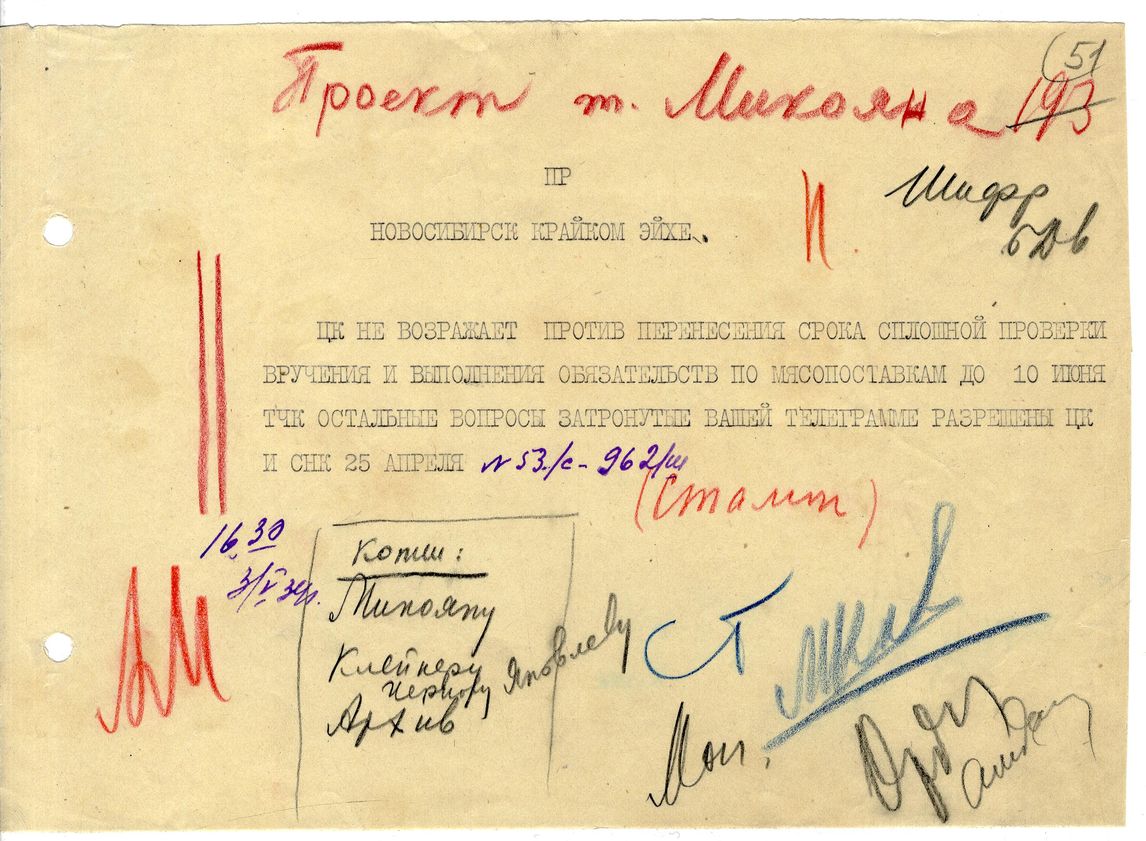 (51
Проект т. Микояна 193
ПР
П.
Шифр
НОВОСИБИРСК КРАЙКОМ ЭЙХЕ.
ЦК НЕ ВОЗРАЖАЕТ ПРОТИВ ПЕРЕНЕСЕНИЯ СРОКА СПЛОШНОЙ ПРОВЕРКИ
ВРУЧЕНИЯ И ВЫПОЛНЕНИЯ ОБЯЗАТЕЛЬСТВ ПО МЯСОПОСТАВКАМ ДО 10 ИЮНЯ
ТЧК ОСТАЛЬНЫЕ ВОПРОСЫ ЗАТРОНУТЫЕ ВАШЕЙ ТЕЛЕГРАММЕ РАЗРЕШЕНЫ ЦК
И СНК 25 АПРЕЛЯ N 53/с-962/ш
(Сталин)
16.30
3/V 34г.
АМ
Копии:
Микояну
Клейнеру
Чернову Яковлеву
Архив
Ст
Мол.